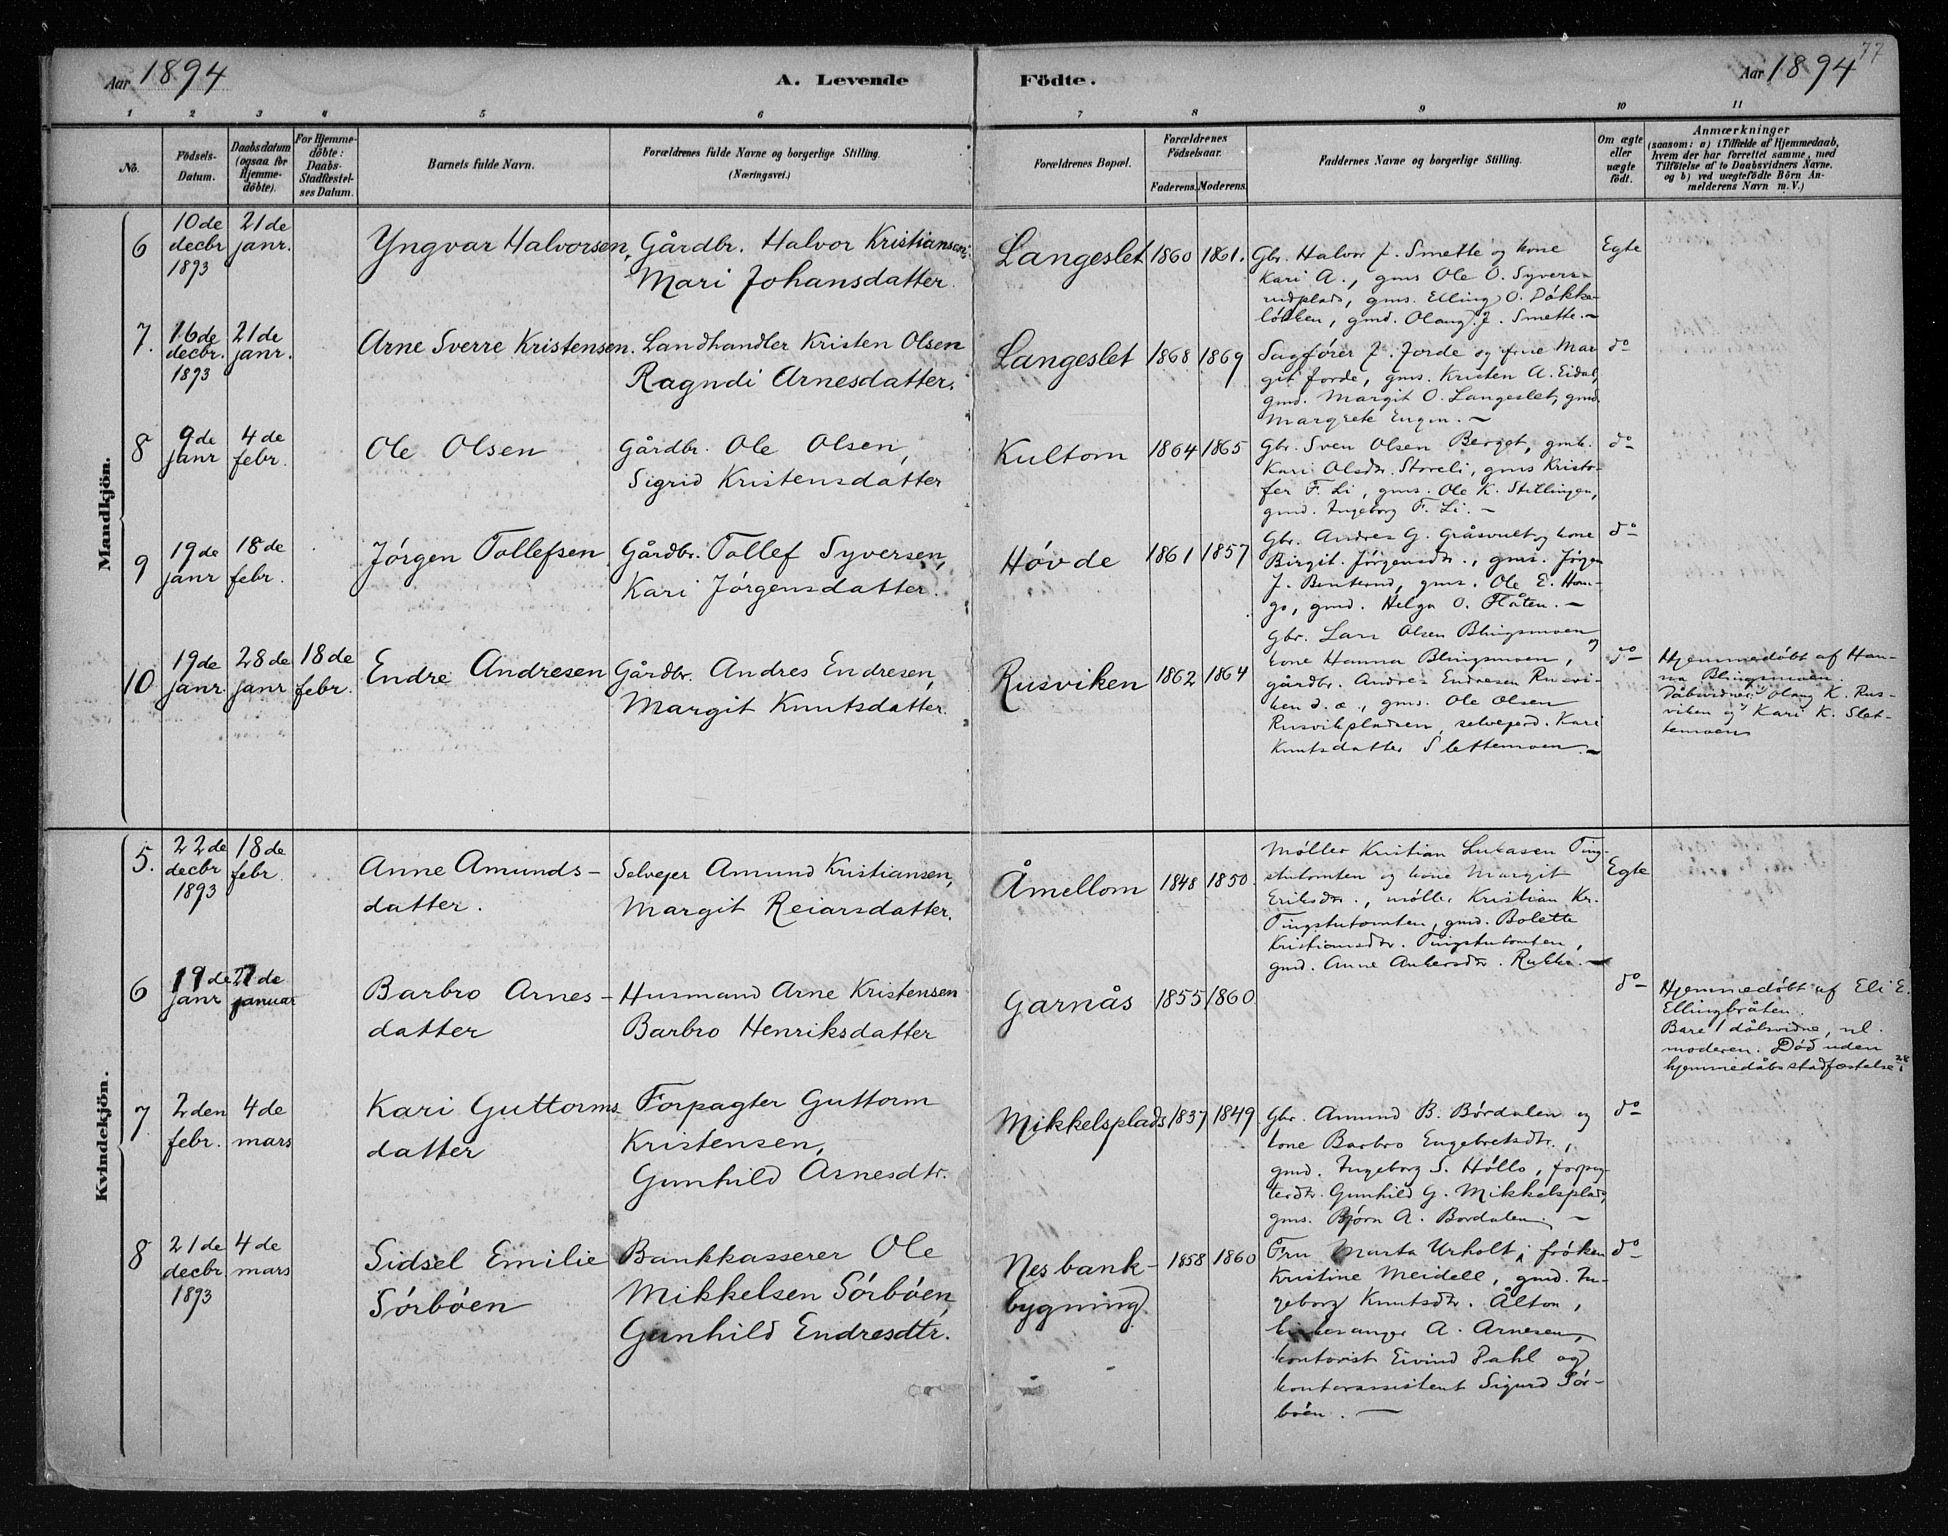 Aar 1894
A. Levende
Födte.
Aar 1894
77
1 2 3 4 5 6 7 8 9 10 11
No.
Födsels-
Datum.
Daabsdatum
(ogsaa for
Hjemme-
döbte).
For Hjemme-
döbte:
Daabs-
Stadfæstel-
ses Datum.
Barnets fulde Navn.
Forældrenes fulde Navne og borgerlige Stilling.
(Næringsvei.)
Forældrenes Bopæl.
Forældrenes
Födselsaar.
Faderens. Moderens.
Faddernes Navne og borgerlige Stilling.
Om ægte
eller
uægte
födt.
Anmærkninger
(saasom: a) i Tilfælde af Hjemmedaab,
hvem der har forrettet samme, med
Tilföielse af to Daabsvidners Navne.
og b) ved uægtefödte Börn An-
melderens Navn m. V.)
Mandkjön.
6
10de
decbr
1893
21de
janr.
Yngvar Halvorsen,
Gårdbr. Halvor Kristiansen
Mari Johansdatter.
Langeslet
1860 1861.
Gbr. Halvor J. Smette og kone
Kari A., gms Ole O. Syvers-
rudplads, gms. Elling O. Dökke-
lökken, gmd. Olaug J. Smette. –
Egte
7.
16de
decbr.
1893
21de
janr.
Arne Sverre Kristensen.
Landhandler Kristen Olsen
Ragndi Arnesdatter.
Langeslet
1868 1869
Sagförer J. Jorde og frue Mar
git Jorde, gms. Kristen A. Eidal,
gmd. Margit O. Langeslet, gmd.
Margrete Engen. –
do
8
9de
janr
4de
febr.
Ole Olsen
Gårdbr. Ole Olsen,
Sigrid Kristensdatter
Kultom
1864 1865
Gbr. Sven Olsen Berget, gmd.
Kari Olsdtr. Storeli, gms Kristo-
fer F. Li, gms. Ole K. Stillingen,
gmd. Ingeborg F. Li. –
do
9
19de
janr
18de
febr.
Jörgen Tollefsen
Gårdbr. Tollef Syversen,
Kari Jörgensdatter.
Hövde
1861 1857
Gbr. Andres G. Gråsvult og kone
Birgit Jörgensdtr., gms. Jörgen
J. Benterud, gms. Ole E. Hau-
go, gmd. Helga O. Flåten. –
do
10
19de
janr.
28de
janr
18de
febr.
Endre Andresen
Gårdbr. Andres Endresen,
Margit Knutsdatter.
Rusviken
1862 1864
Gbr. Lars Olsen Blingsmoen og
kone Hanna Blingsmoen,
gårdbr. Andres Endresen Rusvi-
ken d. æ., gms. Ole Olsen
Rusvikpladsen, selvejerd. Kari
Knutsdatter Slettemoen. –
do
Hjemmedöbt af Han-
na Blingsmoen.
Dåbsvidner: Olaug K. Rus-
viken og Kari K. Slet-
temoen
Kvindekjön.
5.
22de
decbr
1893
18de
febr
Anne Amunds-
datter.
Selvejer Amund Kristiansen,
Margit Reiarsdatter.
Åmellom
1848 1850.
Möller Kristian Lukasen Ting-
stutomten og kone Margit
Eriksdtr., möller Kristian Kr.
Tingstutomten, gmd. Bolette
Kristiansdtr. Tingstutomten,
gmd. Anne Ankersdtr. Rukke. –
Egte
6
19de
janr
27de
januar
Barbro Arnes-
datter
Husmand Arne Kristensen
Barbro Henriksdatter
Garnås
1855 1860
do
Hjemmedöbt af Eli E.
Ellingbråten.
Bare 1 dåbsvidne, nl.
moderen. Död uden
hjemmedåbsstadfæstelse 28/1
7
2den
febr.
4de
mars
Kari Guttorms
datter
Forpagter Guttorm
Kristensen,
Gunhild Arnesdtr.
Mikkelsplads
1837 1849
Gbr. Amund B. Bördalen og
kone Barbro Engebretsdtr.,
gmd. Ingeborg S. Höllo, forpag-
terdtr. Gunhild G. Mikkelsplads,
gms. Björn A. Bordalen. –
do
8
21de
decbr
1893
4de
mars
Sidsel Emilie
Sörböen
Bankkasserer Ole
Mikkelsen Sörböen,
Gunhild Endresdtr.
Nesbank-
bygning
1858 1860
Fru Marta Urholt, fröken
Kristine Meidell, gmd. In-
geborg Knutsdtr. Ålton,
kirkesanger A. Arnesen,
kontorist Eivind Dahl og
kontorassistent Sigurd Sör-
böen. –
do